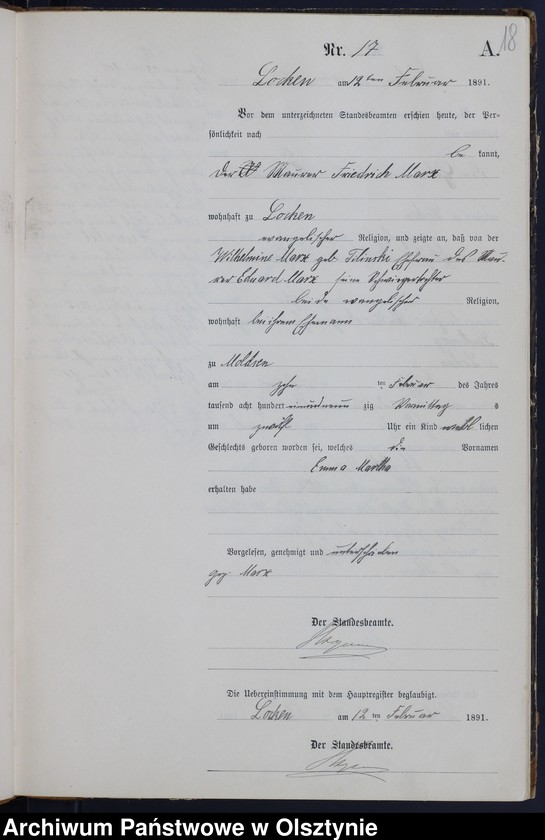 18
Nr. 17 A.
Locken am 12 ten Februar 1891.
Vor dem unterzeichneten Standesbeamten erschien heute, der Per-
sönlichkeit nach
be kannt,
der Maurer Friedrich Marx
wohnhaft zu Locken
evangelischer Religion, und zeigte an, daß von der
Wilhelmine Marx geb Ehefrau des Mau-
rer Eduard Marx seine Schwiegertochter
beide evangelischer Religion,
wohnhaft bei ihrem Ehemann
zu Moldsen
am zehn ten Februar des Jahres
tausend acht hundert einundneun zig Vormittag s
um zwölf Uhr ein Kind weib lichen
Geschlechts geboren worden sei, welches die Vornamen
Emma Martha
erhalten habe
Vorgelesen, genehmigt und unterschrieben
gez. Marx
Der Standesbeamte.
Die Uebereinstimmung mit dem Hauptregister beglaubigt.
Locken am 12 ten Februar 1891.
Der Standesbeamte.
Archiwum Państwowe w Olsztynie